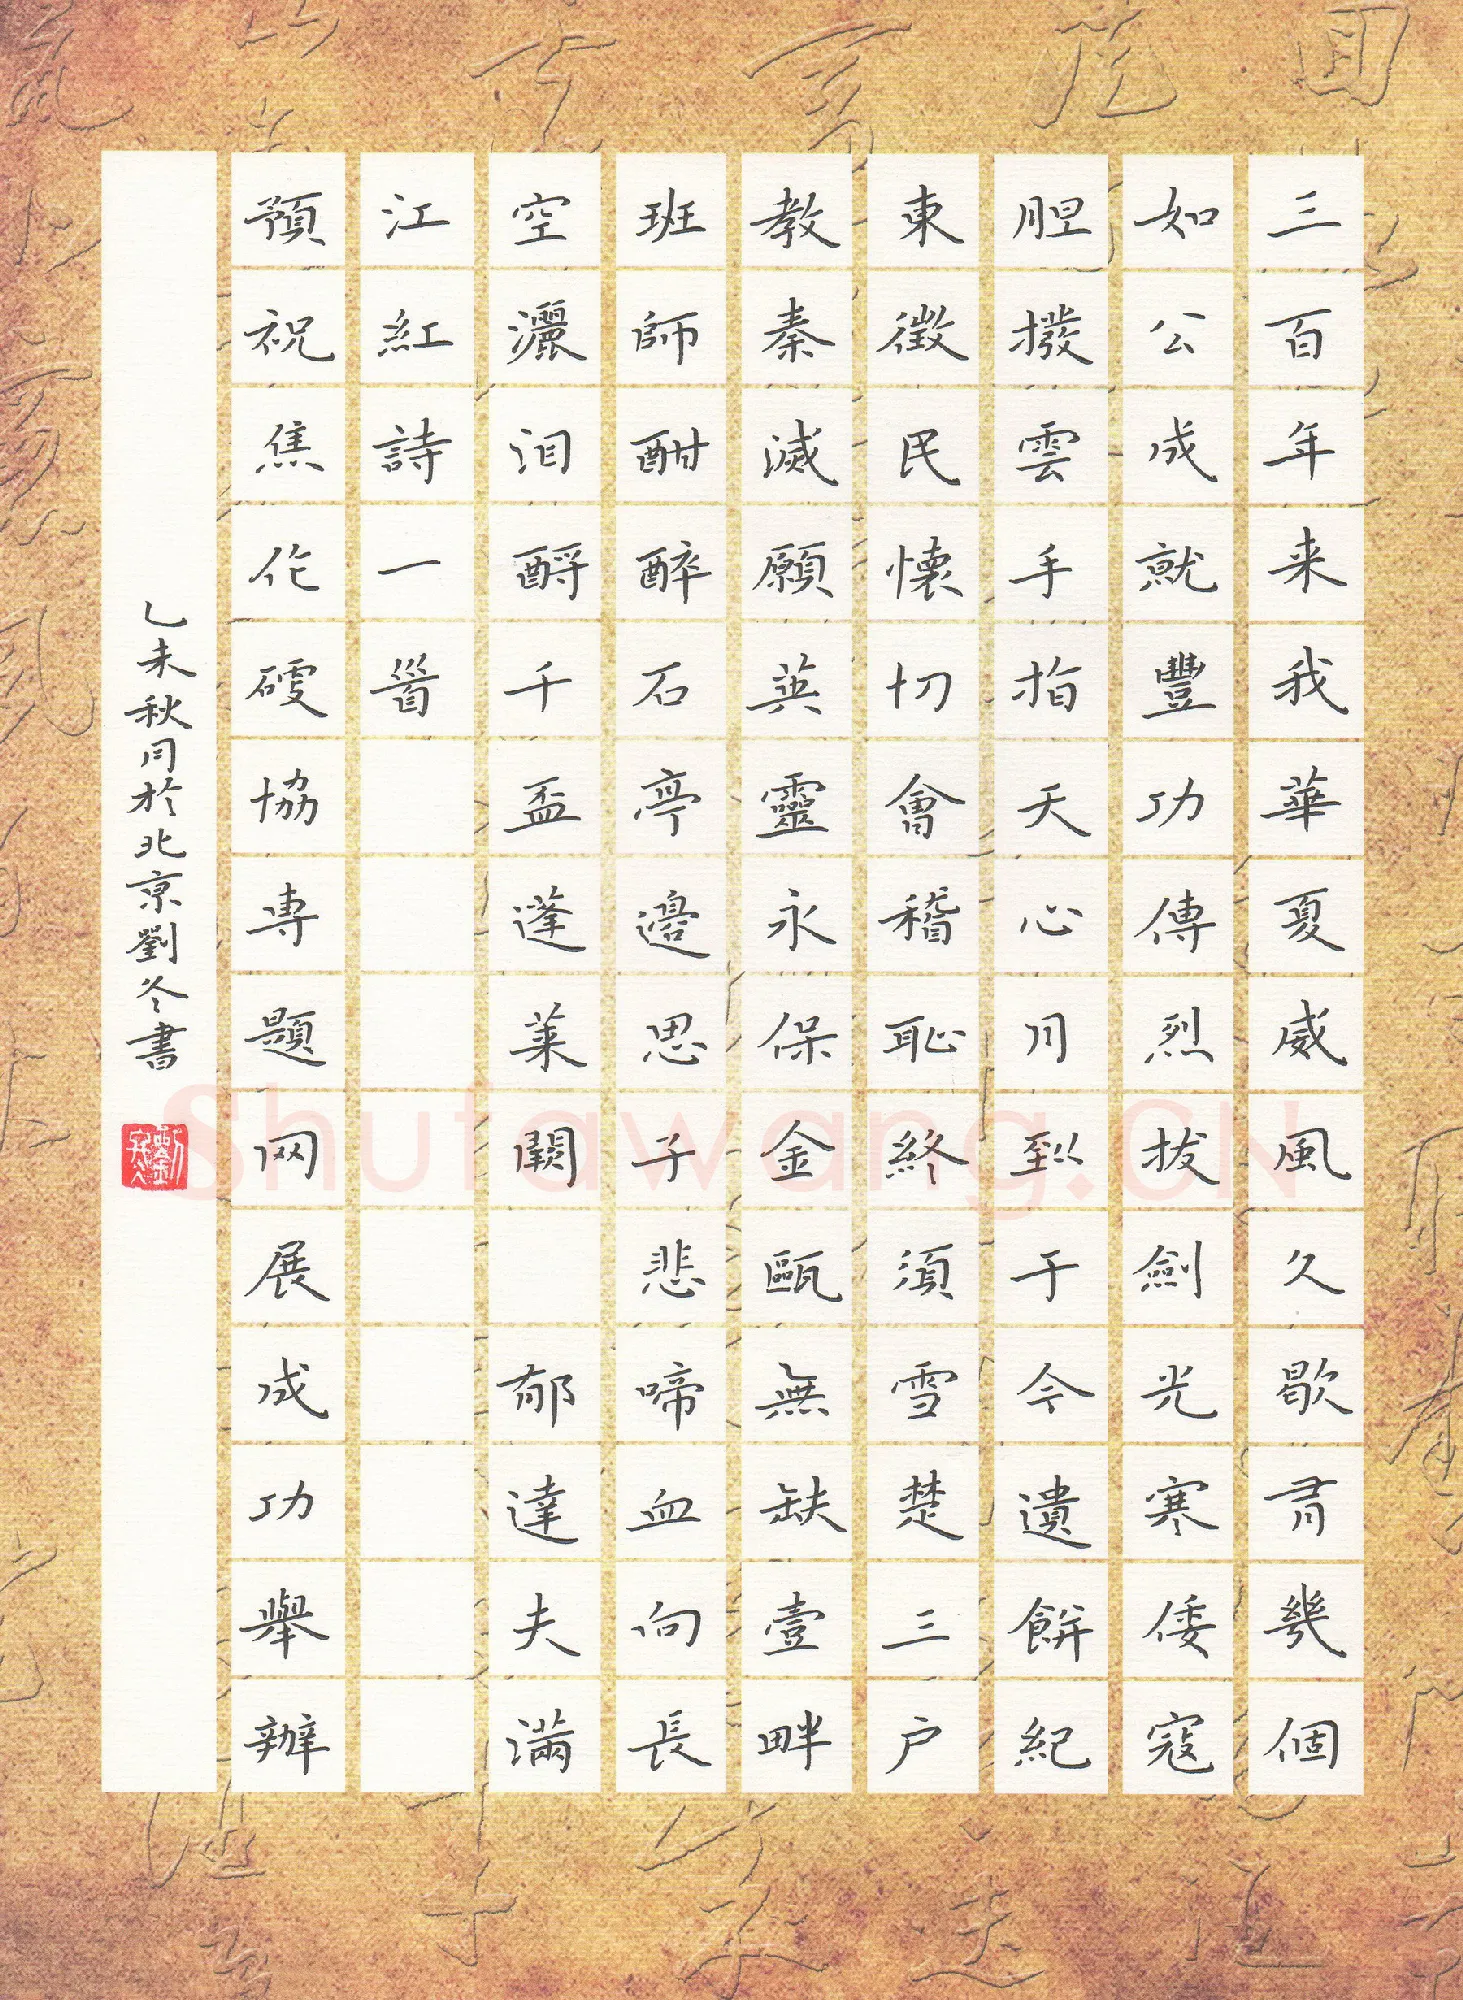 三百年来我華夏威風久歇有幾個
如公成就豐功傳烈拔劍光寒倭寇
胆撥雲手指天心月到于今遺餅紀
東徵民懷切會稽恥終須雪楚三户
教秦滅願英靈永保金甌無缺壹畔
班師酣醉石亭邊思子悲啼血向長
空灑泪酹千盃蓬莱闕郁達夫滿
江紅詩一首
預祝焦作硬協專題网展成功舉辦
乙未秋月於北京劉冬書
Shufawang.CN